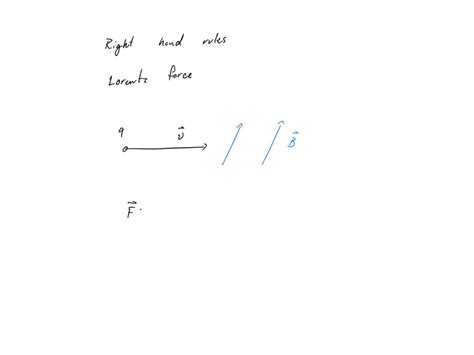 Right hand rules
Lorentz force
q v⃗
B⃗
F⃗